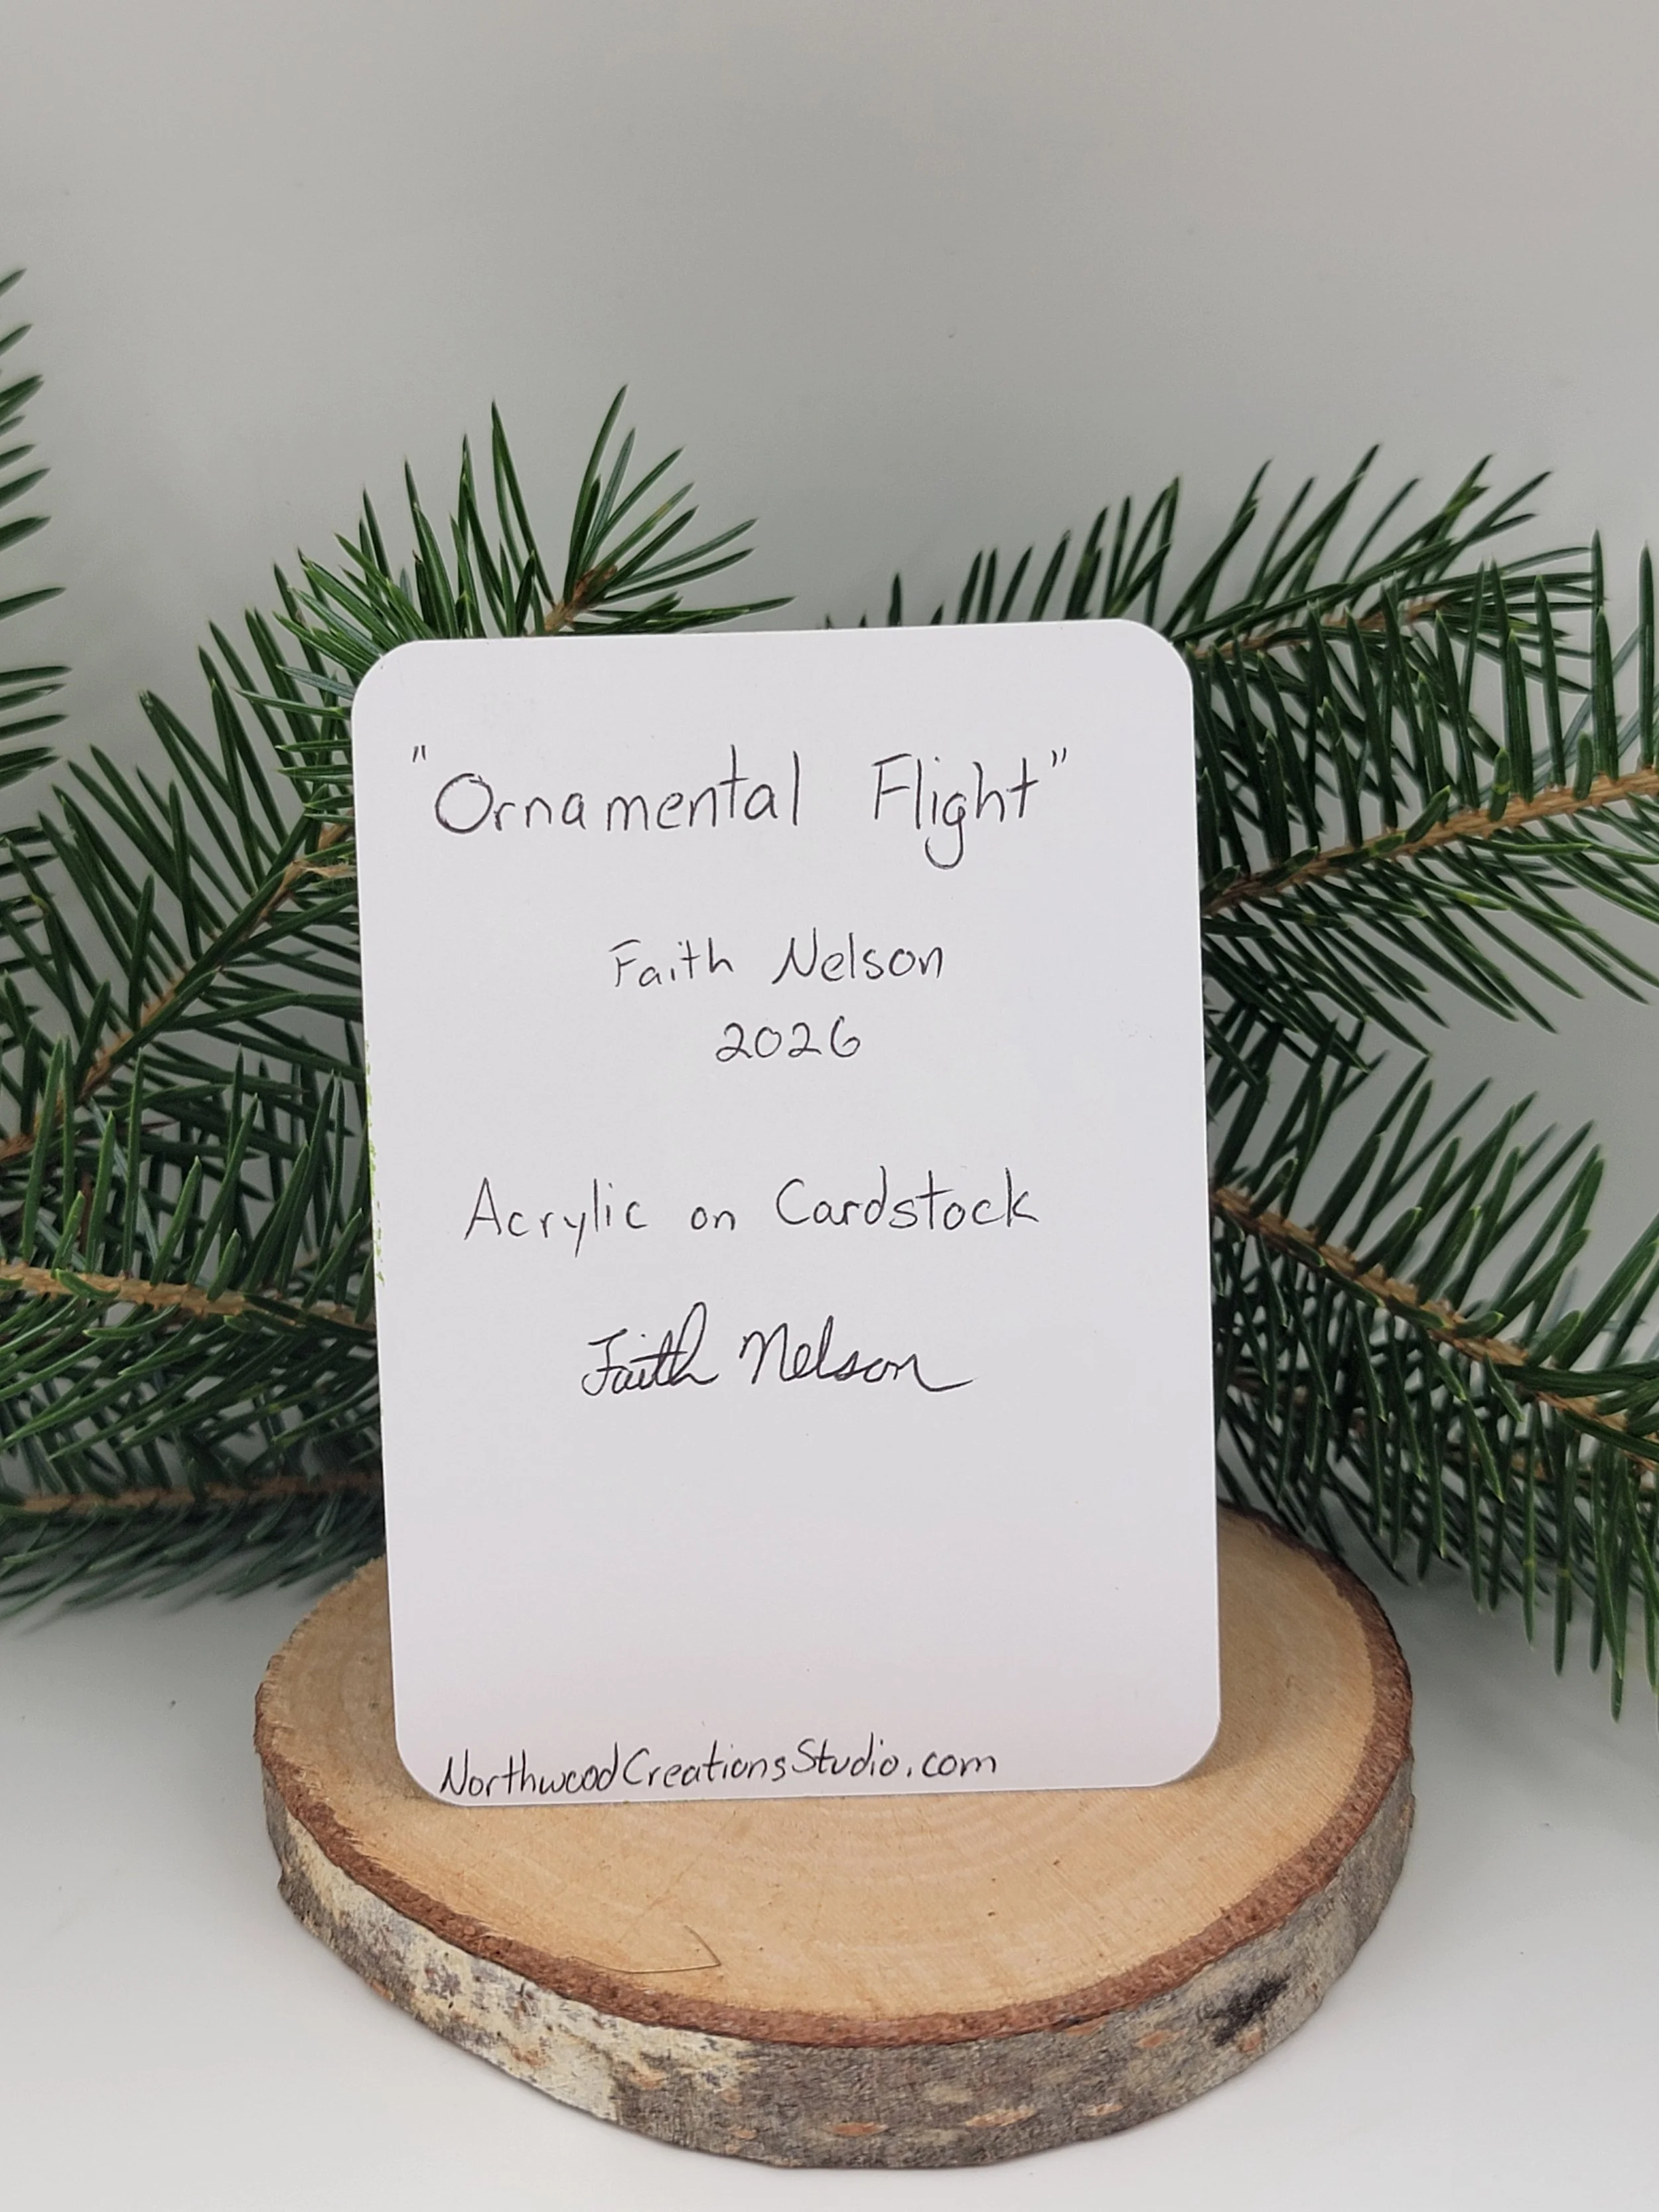 "Ornamental Flight"
Faith Nelson
2026
Acrylic on Cardstock
Faith Nelson
NorthwoodCreationsStudio.com